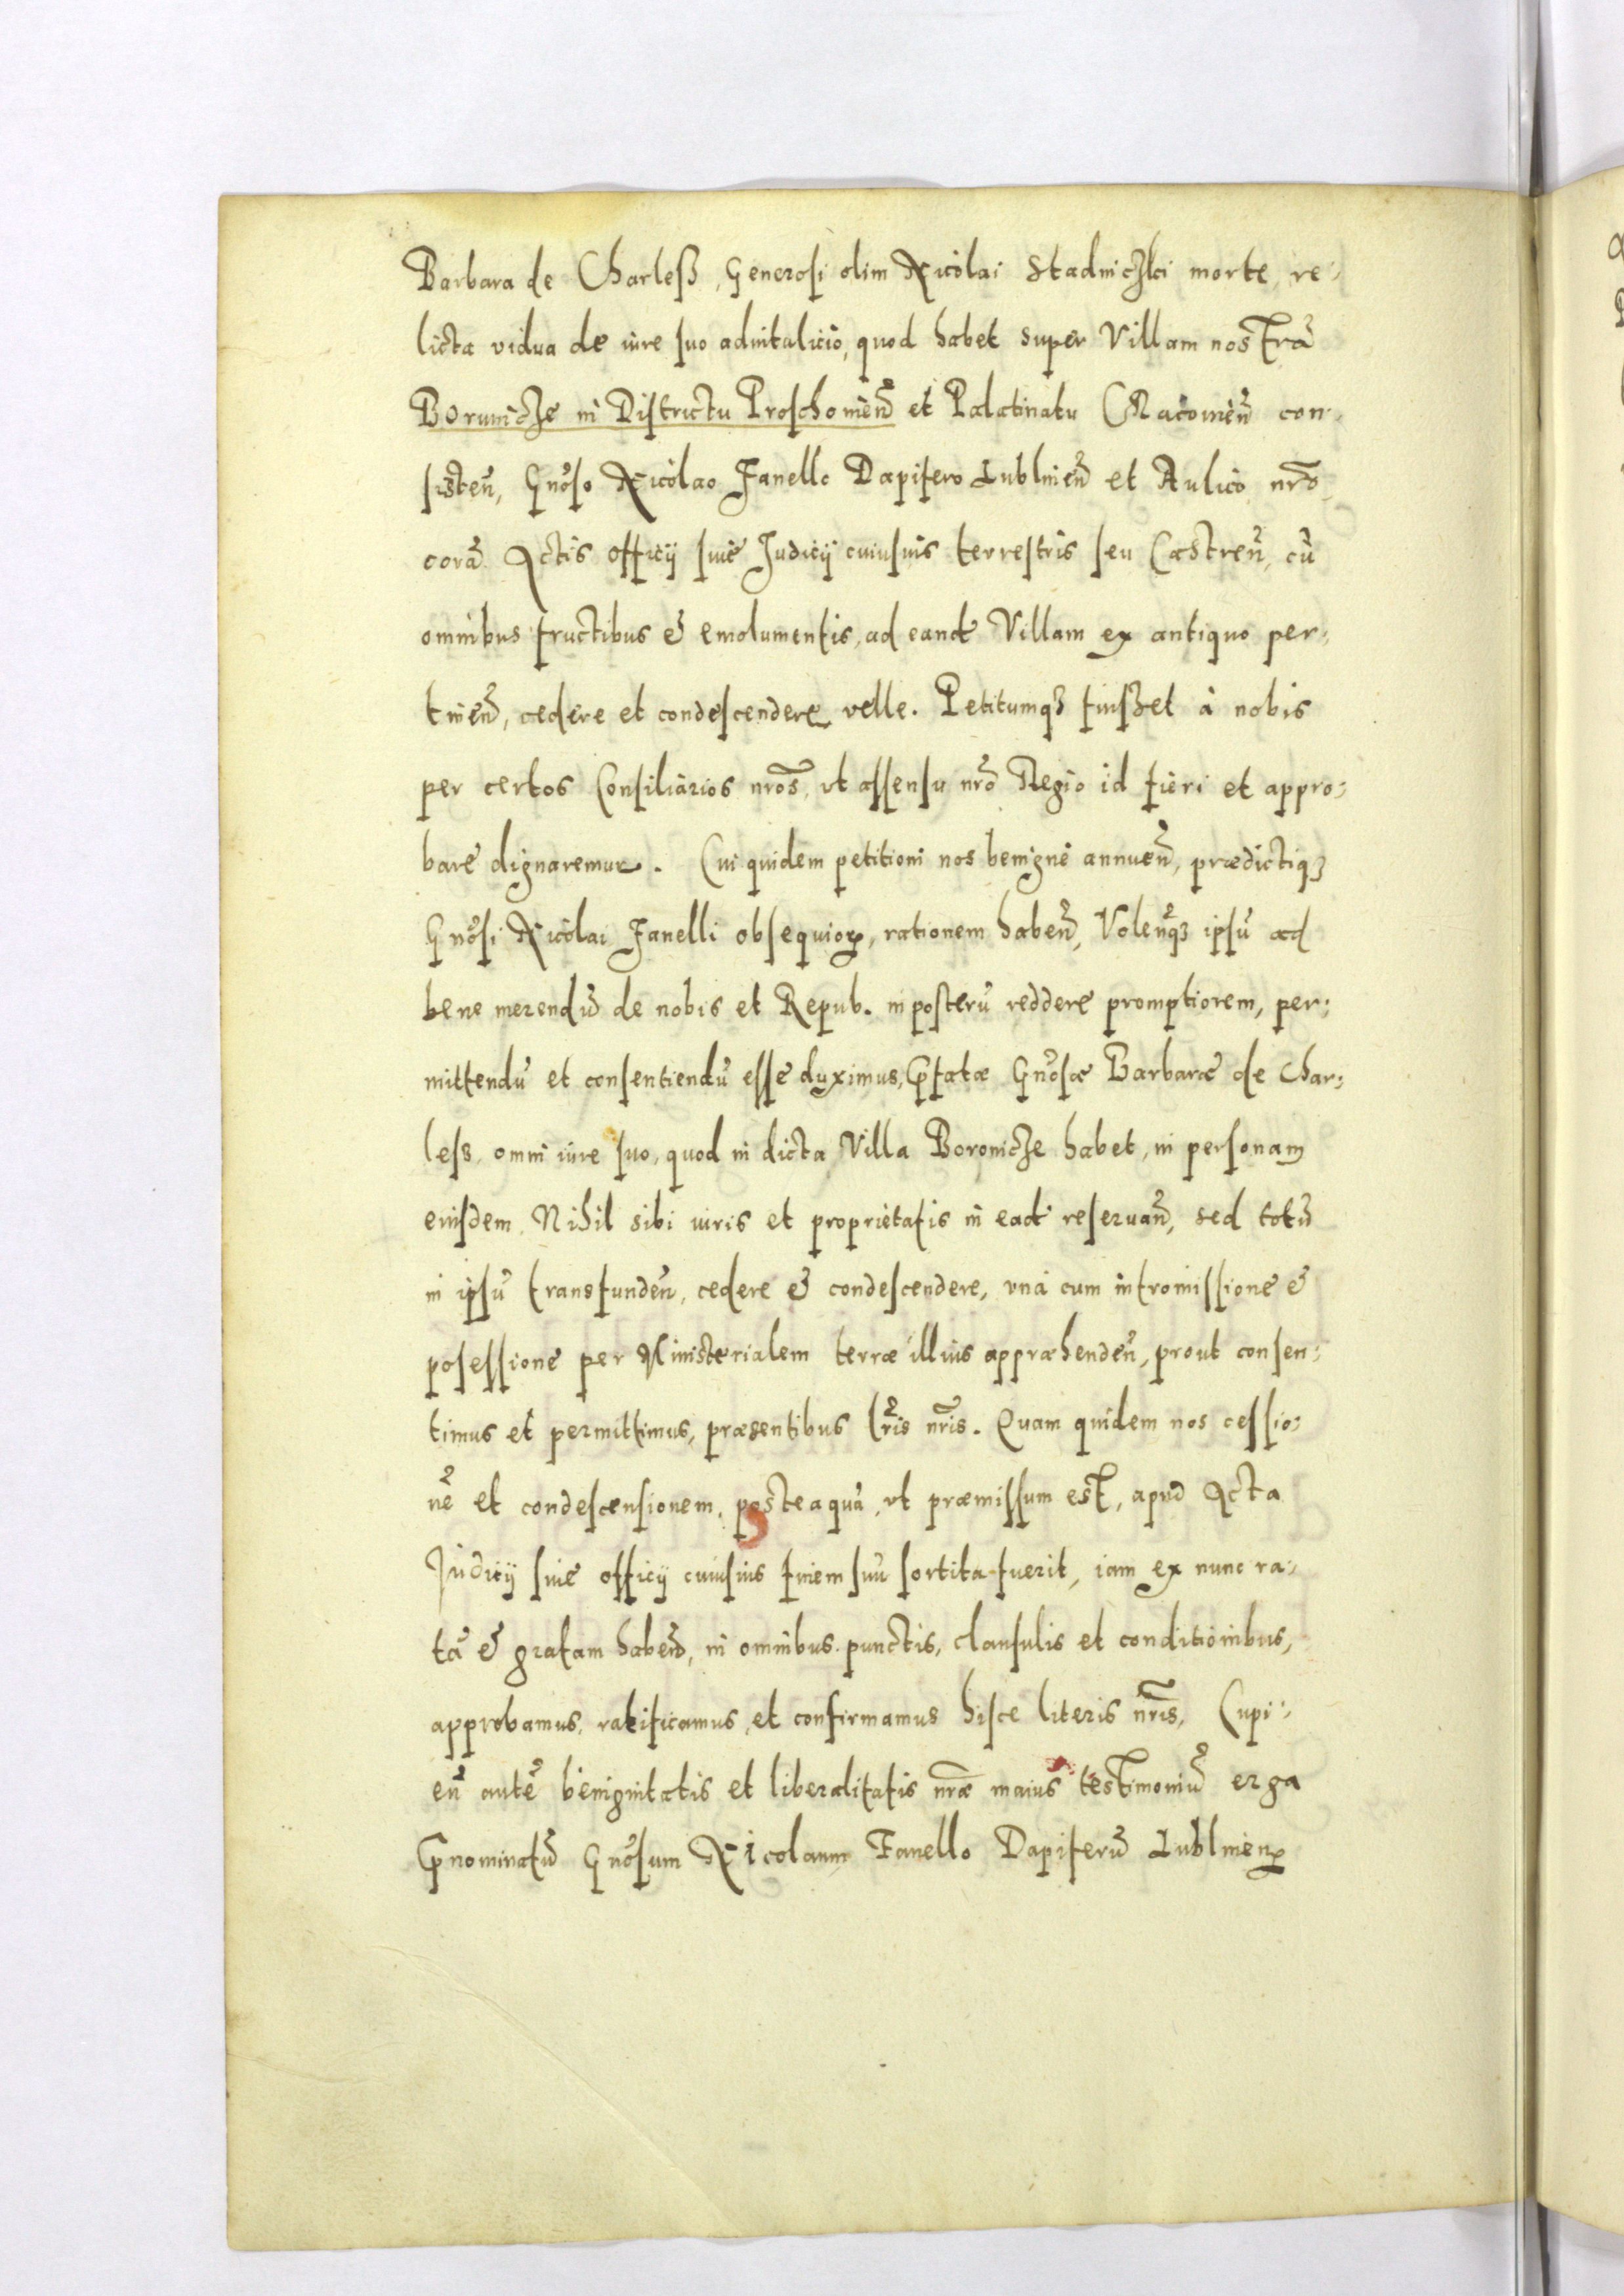 Barbara de Charless, Generosi olim Nicolai Stadniczki morte, re-
licta vidua de iure suo aduitalicio, quod habet super Villam nostrã
Borunicze in Districtu Proschouieñ et Palatinatu Cracouieñ con-
sisteñ, Gnõso Nicolao Fanello Dapifero Lublineñ et Aulico nrõ
corã Actis officij siue Judicij cuiusuis terrestris seu Castreñ, cũ
omnibus fructibus & emolumentis, ad eand' Villam ex antiquo per-
tineñ, cedere et condescendere velle. Petitumqȝ fuisset à nobis
per certos Consiliarios nrõs, vt assensu nrõ Regio id fieri et appro-
bare dignaremur. Cui quidem petitioni nos benignè annueñ, prædictiqȝ
Gnõsi Nicolai Fanelli obsequioꝝ, rationem habeñ, Voleñqȝ ipsũ ad
bene merendũ de nobis et Repub. in posterũ reddere promptiorem, per-
mittendũ et consentiendũ esse duximus, Pfatæ Gnõsæ Barbaræ de Char-
less, omni iure suo, quod in dicta Villa Boronicze habet, in personam
eiusdem. Nihil sibi iuris et proprietatis in ead' reseruañ, sed totũ
in ipsũ transfundeñ, cedere & condescendere, vnà cum intromissione &
posessione per Ministerialem terræ illius appræhendeñ, prout consen-
timus et permittimus, præsentibus lr̃is nr̃is. Quam quidem nos cessio-
nẽ et condescensionem, posteaquã, vt præmissum est, apud Acta
Judicij siue officij cuiusuis finem suũ sortita fuerit, iam ex nunc ra-
tã & gratam habeñ, in omnibus punctis, clausulis et conditionibus,
approbamus, ratificamus, et confirmamus hisce literis nr̃is, Cupi-
eñ autẽ benignitatis et liberalitatis nrã̃e maius testimoniũ erga
Pnominatũ Gnõsum Nicolaum Fanello Dapiferũ Lublineñ